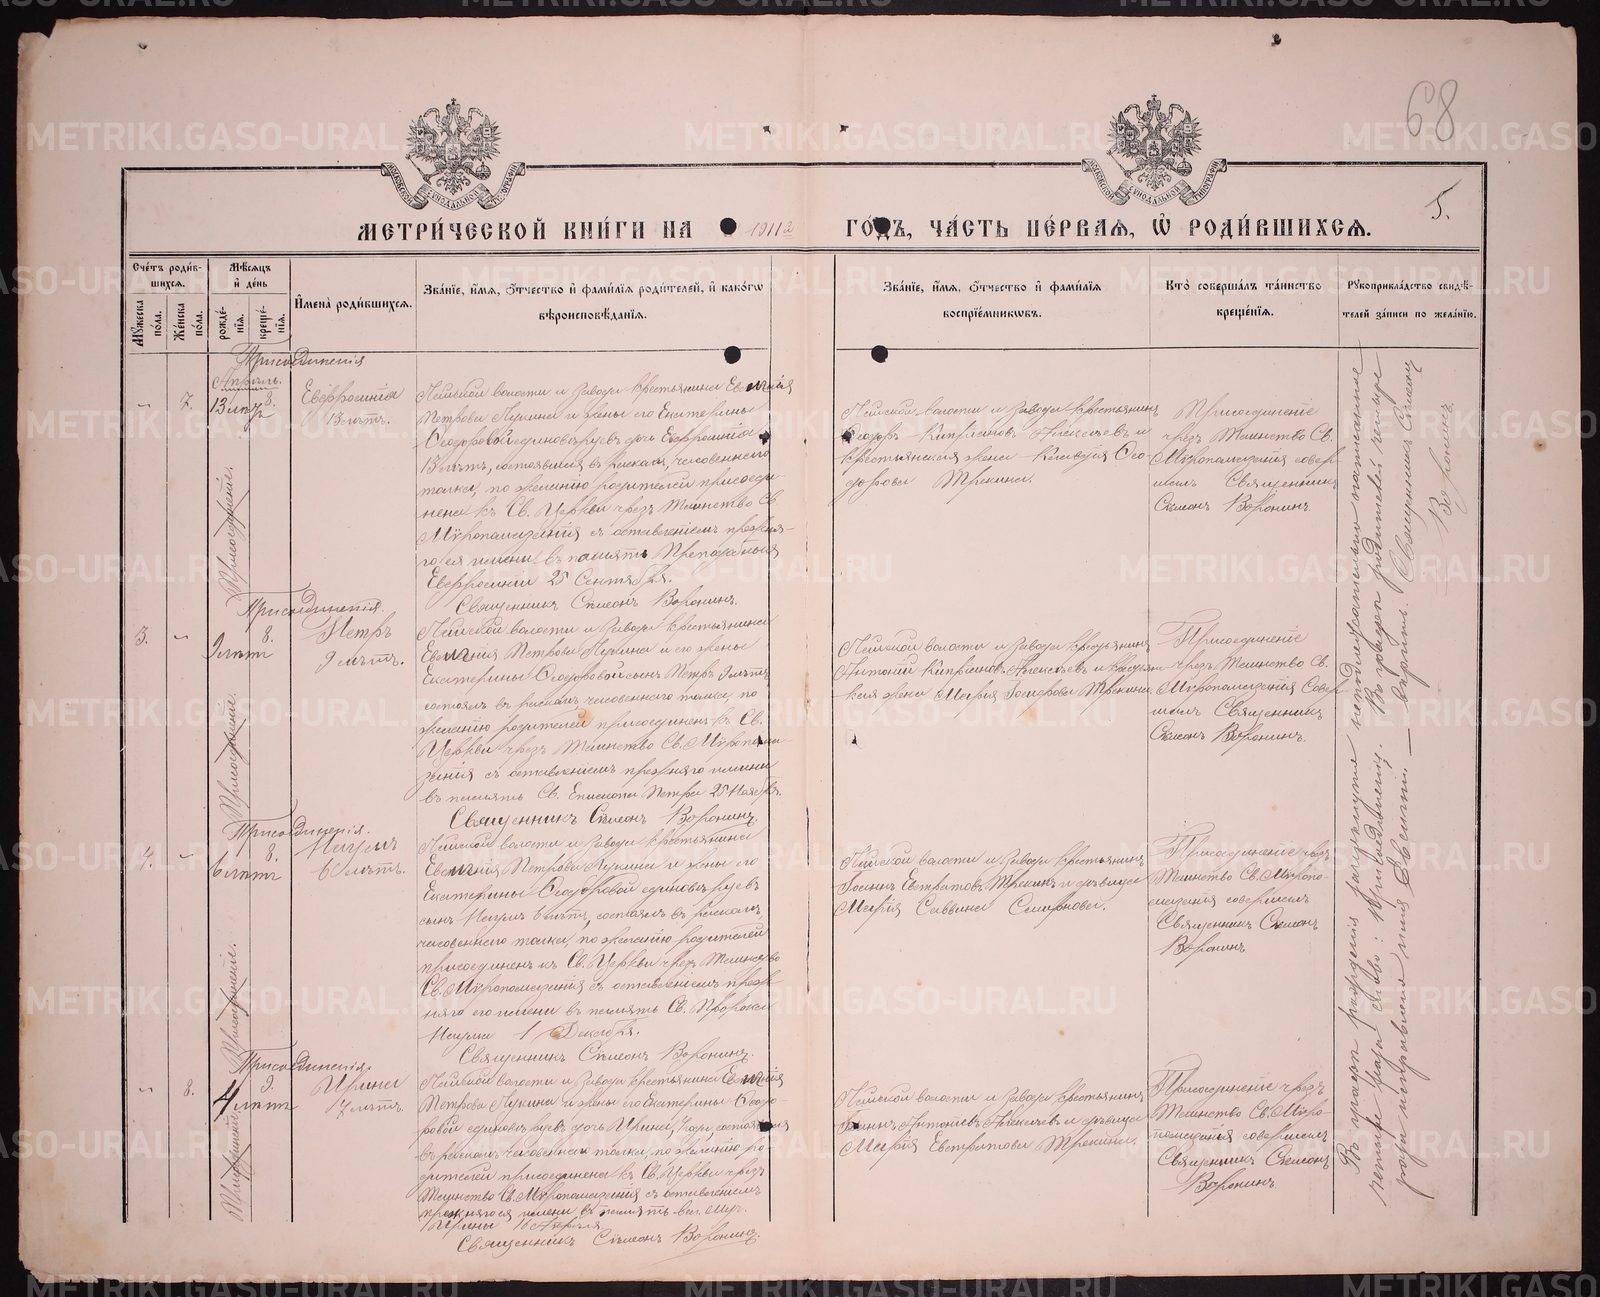 68
5.
МЕТРИ́ЧЕСКОЙ КНИ́ГИ НА 1911 го́дъ, ЧА́СТЬ ПЕ́РВАЯ, Ѡ҆ РОДИ́ВШИХСЯ.
Сче́тъ роди́вшихся.
Мꙋ́жеска по́ла.
Же́нска по́ла.
Мѣ́сяцъ и҆ де́нь
рожде́нїя.
креще́нїя.
И҆мена̀ роди́вшихся.
Зва́нїе, и҆́мя, ѻ҆́тчество и҆ фами́лїя роди́телей, и҆ како́гѡ вѣроисповѣ́данїя.
Зва́нїе, и҆́мя, ѻ҆́тчество и҆ фами́лїя воспрїе́мникѡвъ.
Кто̀ соверша́лъ та́инство креще́нїя.
Рꙋкоприкла́дство свидѣ́телей за́писи по жела́нїю.
Присоединенія
Апрѣль.
7.
13 лѣтъ
8.
Евфросинія
13 лѣтъ.
волости и завода крестьянина Евѳимія
Петрова Лукина и жены его Екатерины
Ѳеодоровой единовѣрцевъ дочь Евфросинія
13 лѣтъ, состоявшая въ расколѣ, часовеннаго
толка, по желанію родителей присоеди-
нена къ Св. Церкви чрезъ Таинство Св.
Мѵропомазанія съ оставленіемъ прежня-
го ея имени въ память Преподобныя
Евфросиніи 25 Сентября.
Священникъ Сѵмеонъ Воронинъ.
волости и завода крестьянинъ
Ѳеодоръ Кипріановъ Алексѣевъ и
крестьянская жена Клавдія Ѳео-
дорова Трекина.
Присоединеніе
чрезъ Таинство Св.
Мѵропомазанія совер-
шилъ Священникъ
Сѵмеонъ Воронинъ.
Присоединенія.
3.
9 лѣтъ
8.
Петръ
9 лѣтъ.
волости и завода крестьянина
Евѳимія Петрова Лукина и его жены
Екатерины Ѳеодоровой сынъ Петръ 9 лѣтъ,
состоялъ въ расколѣ часовеннаго толка, по
желанію родителей присоединенъ къ Св.
Церкви чрезъ Таинство Св. Мѵропома-
занія съ оставленіемъ прежняго имени
въ память Св. Епископа Петра 25 Ноября.
Священникъ Сѵмеонъ Воронинъ.
волости и завода крестьянинъ
Антоній Кипріановъ Алексѣевъ и крестьян-
ская жена Марія Трекина.
Присоединеніе
чрезъ Таинство Св.
Мѵропомазанія Совер-
шилъ Священникъ
Сѵмеонъ Воронинъ.
Присоединенія.
4.
6 лѣтъ
8.
Наумъ
6 лѣтъ.
волости и завода крестьянина
Евѳимія Петрова Лукина и жены его
Екатерины Ѳеодоровой единовѣрцевъ
сынъ Наумъ 6 лѣтъ, состоялъ въ расколѣ,
часовеннаго толка, по желанію родителей
присоединенъ къ Св. Церкви чрезъ Таинство
Св. Мѵропомазанія съ оставленіемъ преж-
няго его имени въ память Св. Пророка
Наума 1 Декабря.
Священникъ Сѵмеонъ Воронинъ.
волости и завода крестьянинъ
Іоаннъ Евстратовъ Трекинъ и дѣвица
Марія Саввина Семенова.
Присоединеніе чрезъ
Таинство Св. Мѵропо-
мазанія совершилъ
Священникъ Сѵмеонъ
Воронинъ.
Присоединенія.
8.
4 лѣтъ
9.
Ирина
лѣтъ.
волости и завода крестьянина Евѳимія
Петрова Лукина и жены его Екатерины Ѳеодо-
ровой единовѣрцевъ дочь Ирина,
въ расколѣ часовеннаго толка, по желанію ро-
дителей присоединена къ Св. Церкви чрезъ
Таинство Св. Мѵропомазанія съ оставленіемъ
прежняго ея имени въ память муч.
Ирины 16 Апрѣля.
Священникъ Сѵмеонъ Воронинъ.
волости и завода крестьянинъ
Іоаннъ Антоніевъ Алексѣевъ и дѣвица
Марія Евстратова Трекина.
Присоединеніе чрезъ
Таинство Св. Мѵро-
помазанія совершилъ
Священникъ Сѵмеонъ
Воронинъ.
Въ графѣ рожденія зачеркнуто написанное
четыре раза слово: Присоединенія. Въ графѣ родителей четыре
раза поправлено имя Евѳимій. — вѣрить. Священникъ Сѵмеонъ
Воронинъ.
METRIKI.GASO-URAL.RU